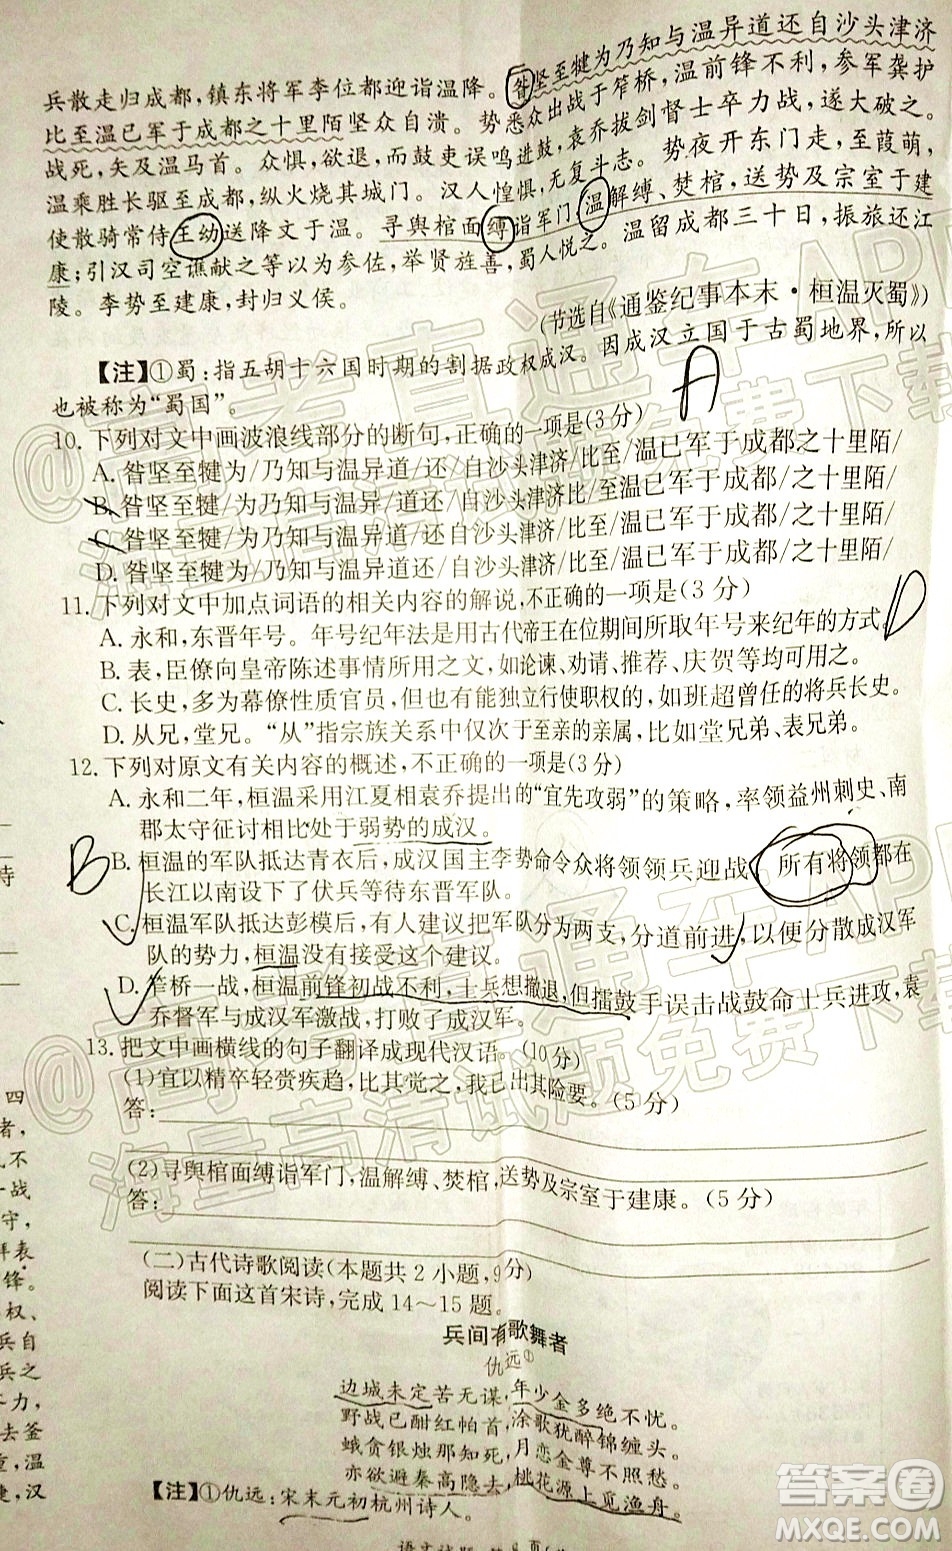 昝坚至犍为乃知与温异道还自沙头津济
兵散走归成都,镇东将军李位都迎诣温降。
比至温已军于成都之十里陌坚众自溃。势悉众出战于笮桥,温前锋不利,参军龚护
战死,矢及温马首。众惧,欲退,而鼓吏误鸣进鼓,袁乔拔剑督士卒力战,遂大破之。
温乘胜长驱至成都,纵火烧其城门。汉人惶惧,无复斗志。势夜开东门走,至葭萌,
使散骑常侍王幼送降文于温。寻舆榇面缚诣军门,温解缚、焚榇,送势及宗室于建
康;引汉司空谯献之等以为参佐,举贤旌善,蜀人悦之。温留成都三十日,振旅还江
陵。李势至建康,封归义侯。
(节选自《通鉴纪事本末·桓温灭蜀》)
【注】①蜀:指五胡十六国时期的割据政权成汉。因成汉立国于古蜀地界,所以
也被称为“蜀国”。
A
10. 下列对文中画波浪线部分的断句,正确的一项是(3分)
A. 昝坚至犍为/乃知与温异道/还/自沙头津济/比至/温已军于成都之十里陌/
B. 昝坚至犍/为乃知与温异/道还/自沙头津济比/至温已军于成都/之十里陌/
C. 昝坚至犍/为乃知与温异道/还/自沙头津济/比至/温已军于成都/之十里陌/
D. 昝坚至犍为/乃知与温异道/还自沙头津济/比至温已军于成都/之十里陌/
11. 下列对文中加点词语的相关内容的解说,不正确的一项是(3分)
D
A. 永和,东晋年号。年号纪年法是用古代帝王在位期间所取年号来纪年的方式。
B. 表,臣僚向皇帝陈述事情所用之文,如论谏、劝请、推荐、庆贺等均可用。
C. 长史,多为幕僚性质官员,但有能独立行使职权的,如班超曾任的将兵长史。
D. 从兄,堂兄。“从”指宗族关系中仅次于至亲的亲属,比如堂兄弟、表兄弟。
12. 下列对原文有关内容的概述,不正确的一项是(3分)
A. 永和二年,桓温采用江夏相袁乔提出的“宜先攻弱”的策略,率领益州刺史、南
郡太守征讨相比处于弱势的成汉。
B
B. 桓温的军队抵达青衣后,成汉国主李势命令众将领领兵迎战,所有将领都在
长江以南设下了伏兵等待东晋军队。
C. 桓温军队抵达彭模后,有人建议把军队分为两支,分道前进,以便分散成汉军
队的势力,桓温没有接受这个建议。
D. 笮桥一战,桓温前锋初战不利,士兵想撤退,但擂鼓手误击战鼓命士兵进攻,袁
乔督军与成汉军激战,打败了成汉军。
13. 把文中画横线的句子翻译成现代汉语。(10分)
(1)宜以精卒轻赍疾趋,比其觉之,我已出其险要。(5分)
答:
(2)寻舆榇面缚诣军门,温解缚、焚榇,送势及宗室于建康。(5分)
答:
(二)古代诗歌阅读(本题共2小题,9分)
阅读下面这首宋诗,完成14~15题。
兵间有歌舞者
仇远①
边城未定苦无谋,年少金多绝不忧。
野战已酣红帕首,涂歌犹醉锦缠头。
蛾贪银烛那知死,月恋金尊不照愁。
亦欲避秦高隐去,桃花源上觅渔舟。
【注】①仇远:宋末元初杭州诗人。